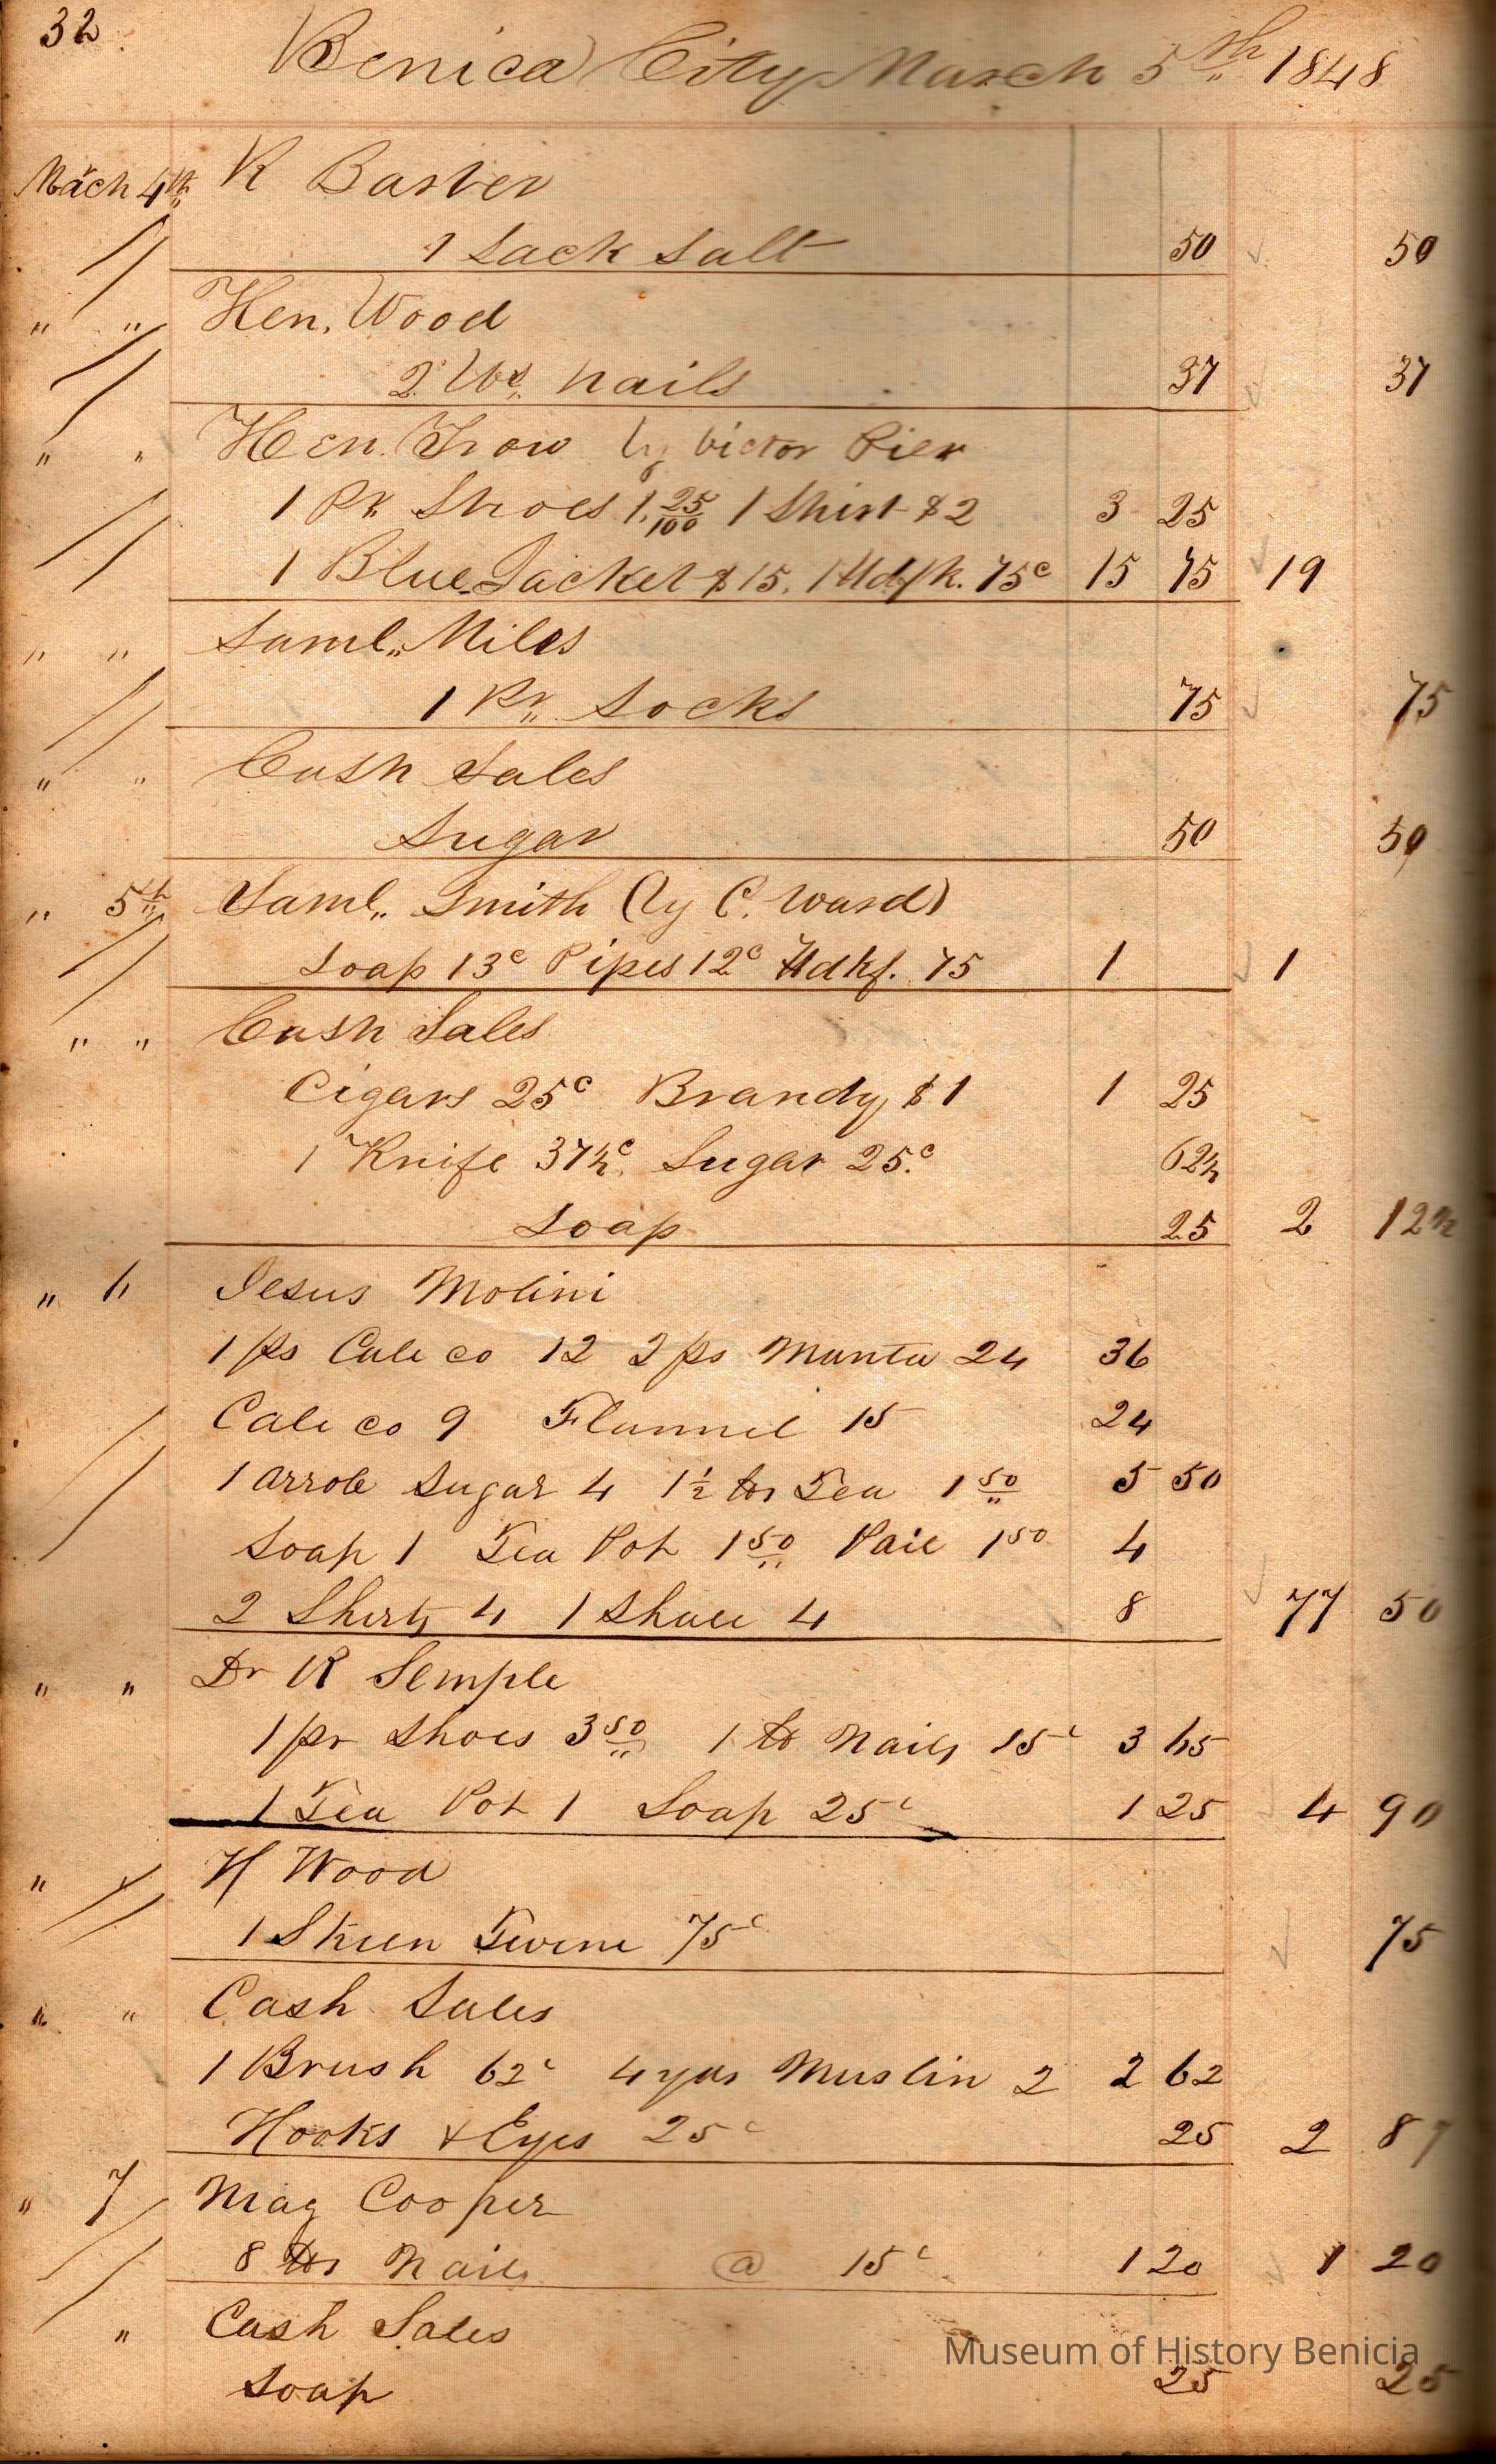 32
Benica City March 5th 1848
Mach 4th R Barber
1 Sack Salt 50 50
" " Hen. Wood
2 lbs. nails 37 37
" " Hen. Trow by Victor Pier
1 Pr. Shoes 1.25/100 1 Shirt $2 3 25
1 Blue Jacket $15. 1 Hdfk. 75c 15 75 19
" " Saml. Miles
1 Pr. Socks 75 75
" " Cash Sales
Sugar 50 50
" 5th Saml. Smith (by C. Ward)
Soap 13c Pipes 12c Hdkf. 75 1 1
" " Cash Sales
Cigars 25c Brandy $1 1 25
1 Knife 37½c. Sugar 25.c 62½
Soap 25 2 12½
" 6 Jesus Molini
1 ps Calico 12 2 ps Manta 24 36
Calico 9 Flannel 15 24
1 arrobe Sugar 4 1½ lbs Tea 1 50 5 50
Soap 1 Tea Pot 1 50 Paie 1 50 4
2 Shirts 4 1 Shall 4 8 77 50
" " Dr R Semple
1 pr Shoes 3 50 1 lb Nails 15c 3 65
1 Tea Pot 1 Soap 25c 1 25 4 90
" " H Wood
1 Skien Twine 75c 75
" " Cash Sales
1 Brush 62c 4 yds Muslin 2 2 62
Hooks & Eyes 25c 25 2 87
" 7 May Cooper
8 lbs Nails @ 15c 1 20 1 20
" Cash Sales
Soap 25 25
Museum of History Benicia